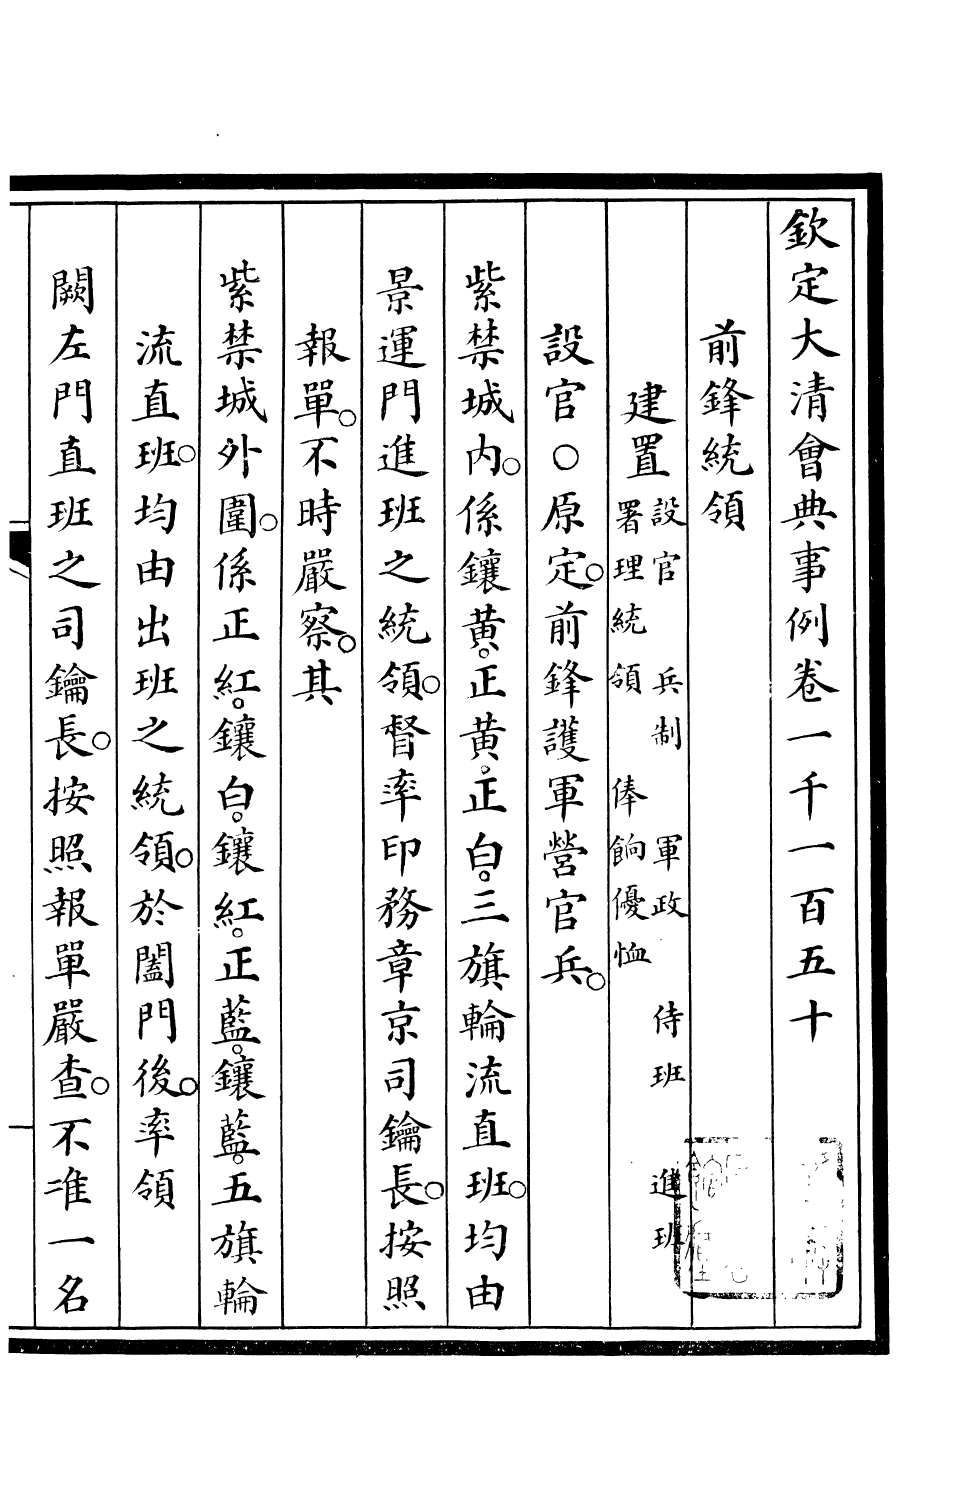 欽定大清會典事例卷一千一百五十
前鋒統領
建置 設官 兵制 軍政 侍班 進班 署理統領 俸餉優恤
設官○原定。前鋒護軍營官兵。
紫禁城內。係鑲黃。正黃。正白。三旗輪流直班。均由
景運門進班之統領。督率印務章京司鑰長。按照
報單。不時嚴察。其
紫禁城外圍。係正紅。鑲白。鑲紅。正藍。鑲藍。五旗輪
流直班。均由出班之統領。於闔門後。率領
闕左門直班之司鑰長。按照報單嚴查。不准一名